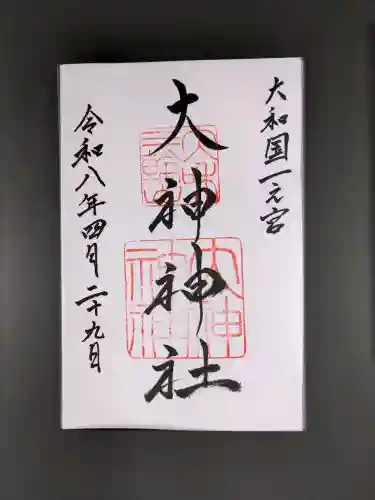 大和国一之宮
大神神社
令和八年四月二十九日
大神神社